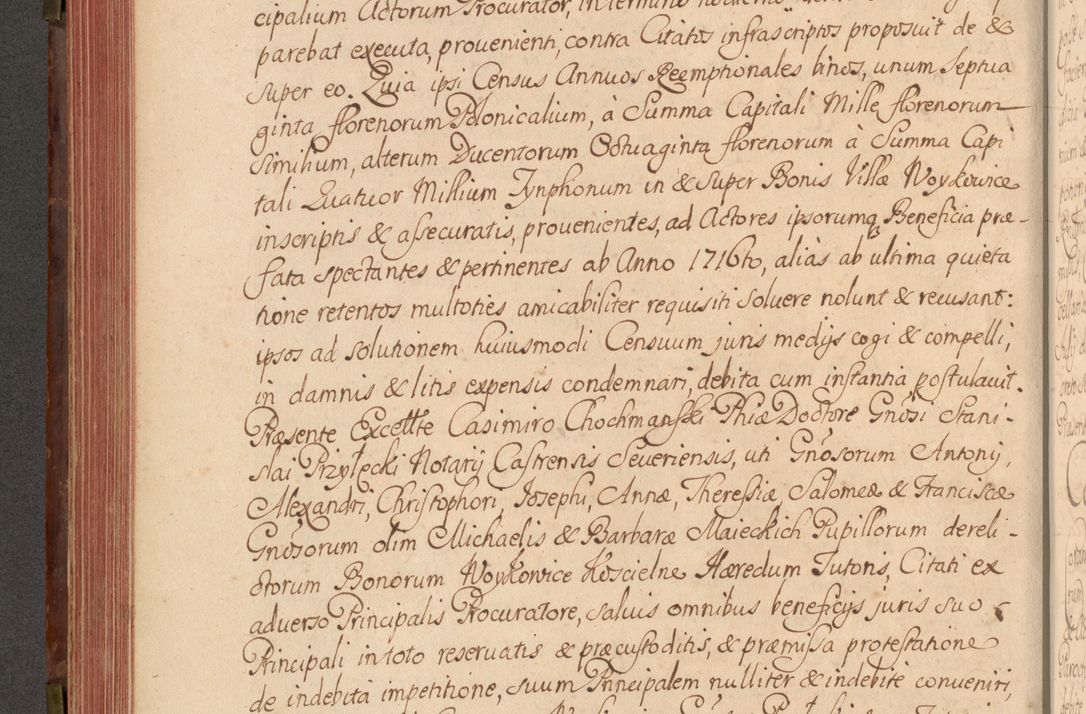 cipalium Actorum Procurator, in termino hodierno
parebat executa, prouenienti, contra Citatos infrascriptos proposuit de &
super eo. Quia ipsi Census Annuos Reemptionales binos, unum Septua
ginta florenorum Polonicalium, à Summa Capitali Mille florenorum
similium, alterum Ducentorum Octuaginta florenorum à Summa Capi
tali Quatuor Millium Tynphonum in & super Bonis Villæ Woykowice
inscriptis & assecuratis, prouenientes, ad Actores ipsorumq Beneficia præ-
fata spectantes & pertinentes ab Anno 1716to, aliàs ab ultima quieta
tione retentos multoties amicabiliter requisiti soluere nolunt & recusant:
ipsos ad solutionem huiusmodi Censuum juris medijs cogi & compelli,
in damnis & litis expensis condemnari, debita cum instantia postulauit.
Præsente Excellte Casimiro Chochmański Phiæ Doctore Gnosi Stani-
slai Przyłęcki Notarij Castrensis Seueriensis, uti Gnosorum Antonij,
Alexandri, Christophori, Josephi, Annæ, Theresiæ, Salomeæ & Franciscæ
Gnosorum olim Michaelis & Barbaræ Maieckich Pupillorum dereli-
ctorum Bonorum Woykowice Kościelne Hæredum Tutoris, Citati ex
aduerso Principalis Procuratore, saluis omnibus beneficijs juris suo
Principali in toto reseruatis & præcustoditis, & præmissa protestatione
de indebita impetitione, suum Principalem nulliter & indebite conueniri,